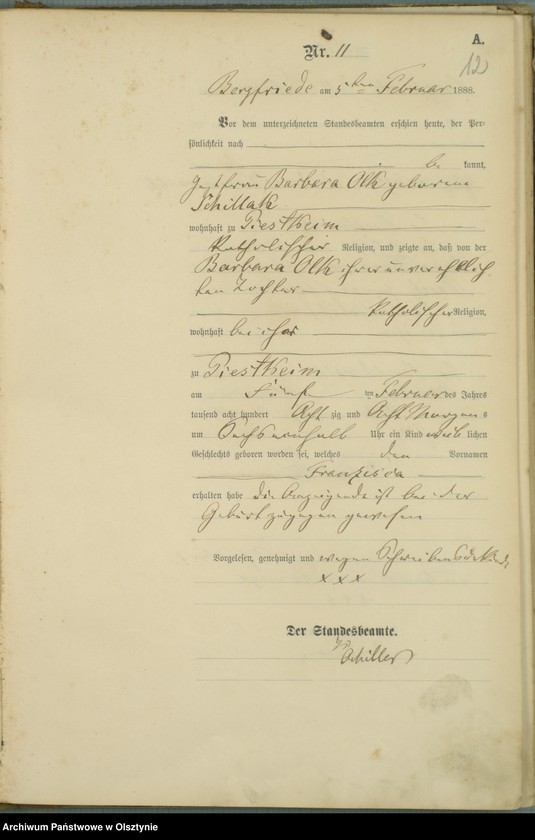 A.
12
Nr. 11
Bergfriede am 5ten Februar 1888.
Vor dem unterzeichneten Standesbeamten erschien heute, der Per-
sönlichkeit nach
be kannt,
Barbara Olk geborene
Schillak
wohnhaft zu Piestkeim
katholischer Religion, und zeigte an, daß von der
Barbara Olk ihrer unverehelich
ten Tochter
katholischer Religion,
wohnhaft bei ihr
zu Piestkeim
am fünften Februar des Jahres
tausend acht hundert Acht zig und Acht Morgens
um Sechseinhalb Uhr ein Kind weib lichen
Geschlechts geboren worden sei, welches den Vornamen
Franzisca
erhalten habe die Anzeigende ist bei der
Geburt zugegen gewesen
Vorgelesen, genehmigt und wegen
x x x
Der Standesbeamte.
Schiller
Archiwum Państwowe w Olsztynie